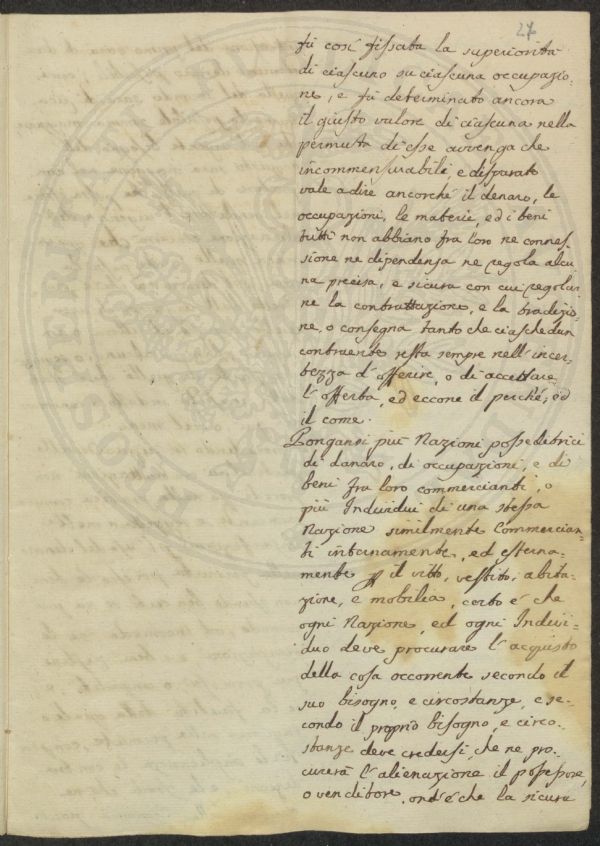 27
fù così fissata la superiorità
di ciascuno su ciascuna occupazio-
ne, e fù determinato ancora
il giusto valore di ciascuna nella
permuta di esse avvenga che
incommensurabili, e disparate
vale a dire ancorché il denaro, le
occupazioni, le materie, ed i beni
tutti non abbiano fra loro ne connes-
sione ne dipendenza ne regola alcu-
na precisa, e sicura con cui regolar-
ne la contrattazione, e la tradizio-
ne, o consegna tanto che ciaschedun
contraente resta sempre nell'incer-
tezza d'offerire, o di accettare
l'offerta, ed eccone il perché, ed
il come.
Pongansi più Nazioni posseditrici
di danaro, di occupazioni, e di
beni fra loro commercianti, o
più Individui di una stessa
Nazione similmente Commercian-
ti internamente, ed esterna-
mente il vitto, vestito, abita-
zione, e mobilia, certo é che
ogni Nazione, ed ogni Indivi-
duo deve procurare l'acquisto
della cosa occorrente secondo il
suo bisogno, e circostanze, e se-
condo il proprio bisogno, e circo-
stanze deve credersi, che ne pro-
curerà l'alienazione il possessore,
o venditore, ond'é che la sicura